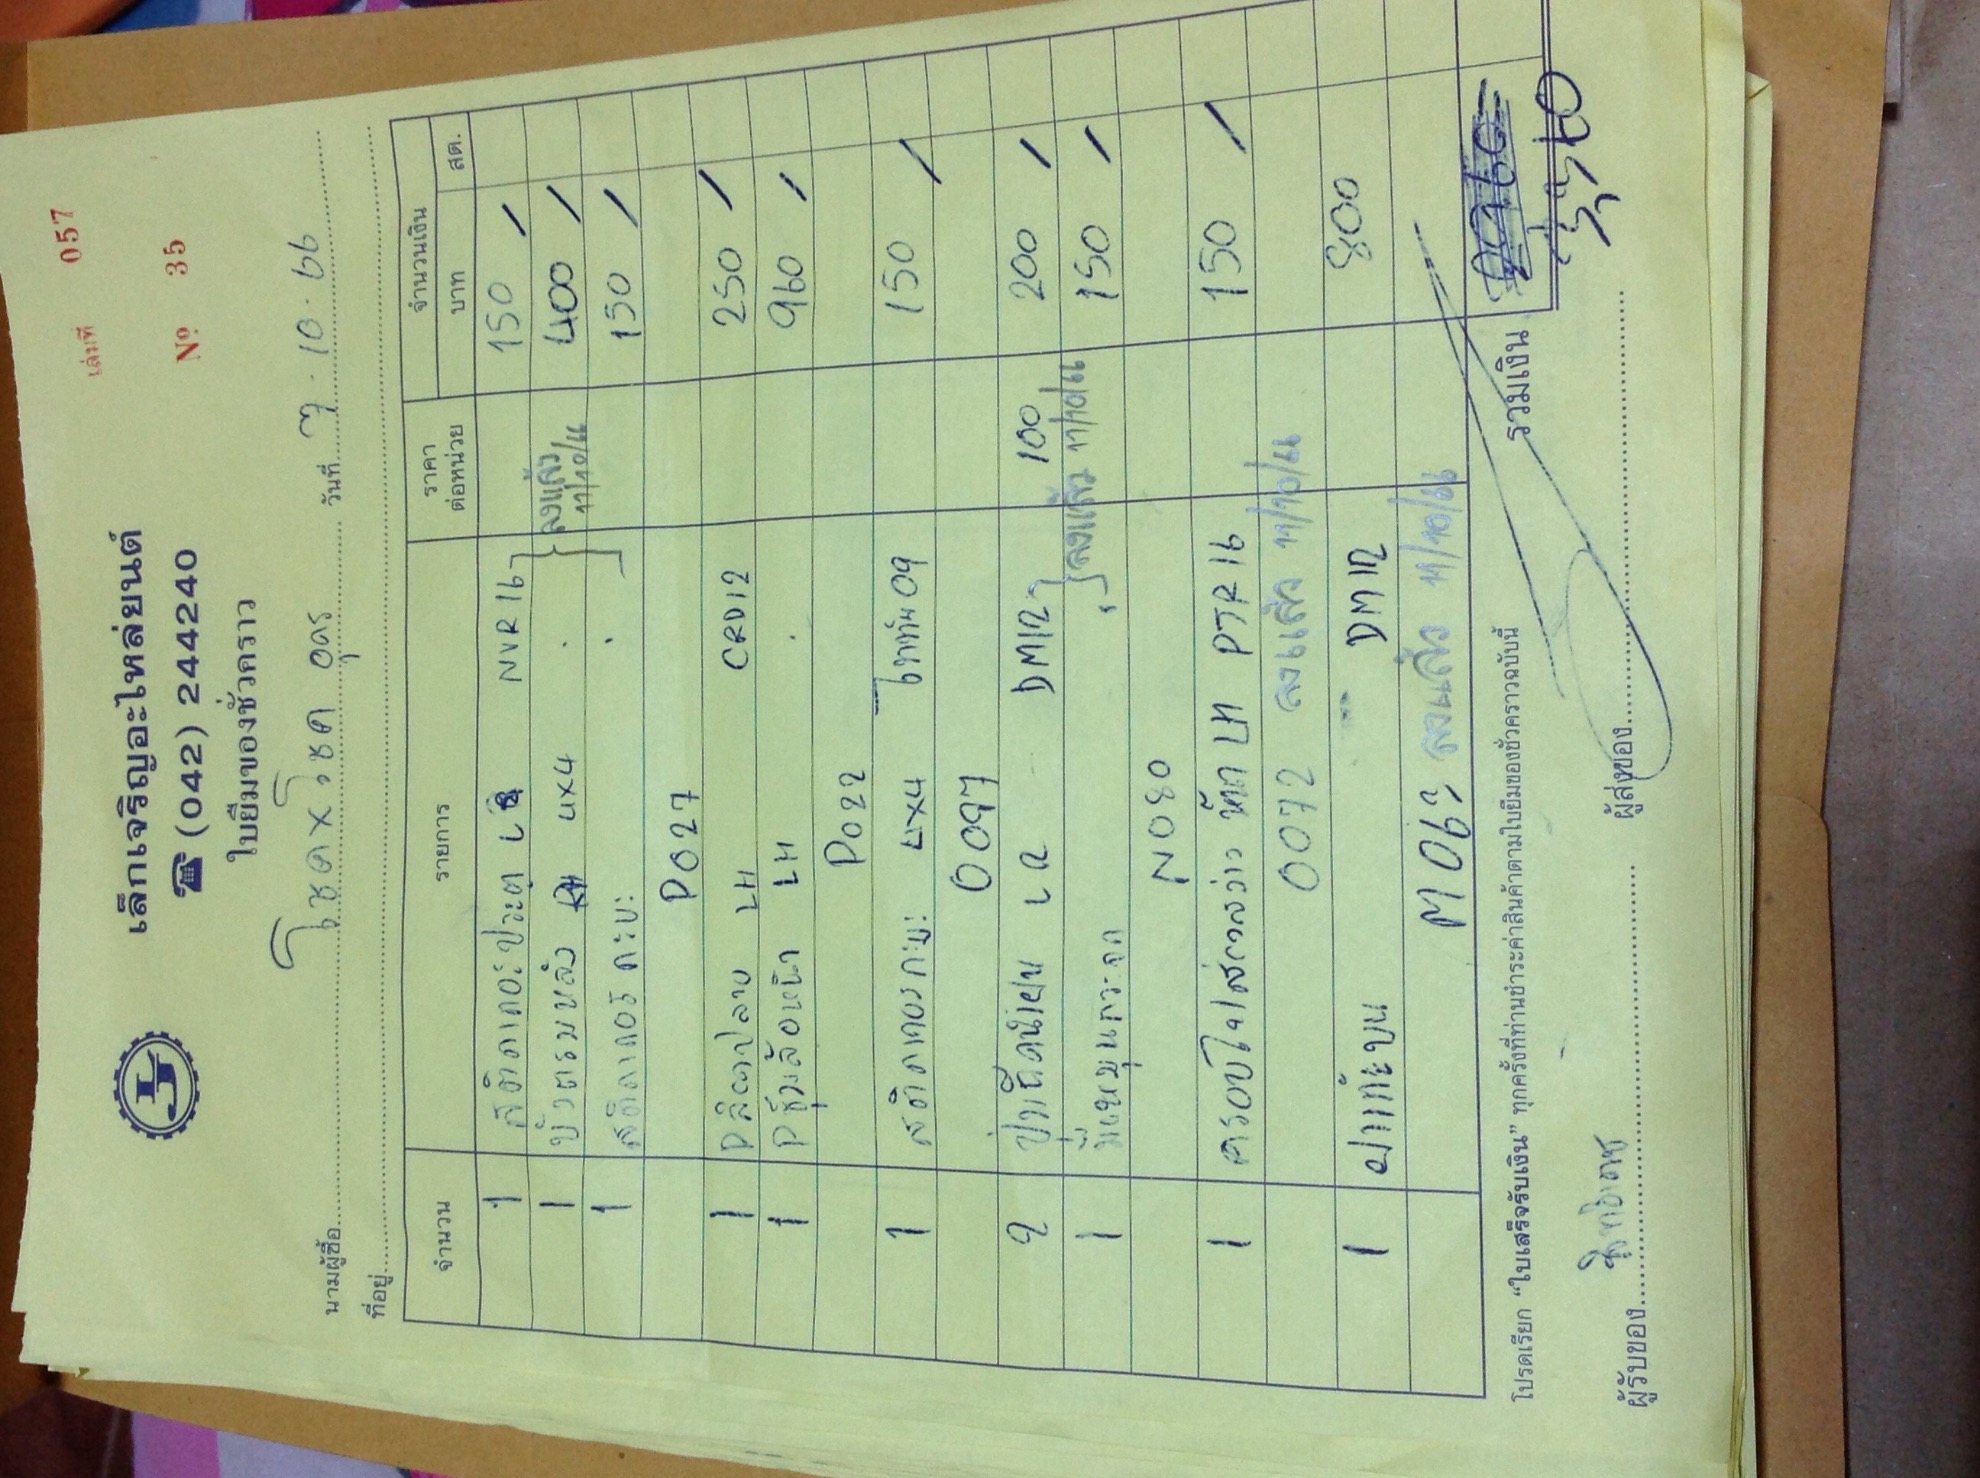 เล่มที่ 057
เล็กเจริญอะไหล่ยนต์
☎ (042) 244240
Nº 35
ใบยืมของชั่วคราว
นามผู้ซื้อ โชค x โชค อุดร วันที่ 7-10-66
ที่อยู่
จำนวน รายการ ราคาต่อหน่วย จำนวนเงิน
บาท สต.
1 สติกเกอร์ประตู NVR16 150
1 4x4 ลงแล้ว 400
1 สติกเกอร์กะบะ 11/10/66 150
P027
1 LH CRD12 250
1 LH 960
P022
1 สติกเกอร์กะบะ 4x4 ไททัน 09 150
0097
2 LR DM12 100 200
1 มือหมุนกระจก ลงแล้ว 11/10/66 150
N080
1 LH PTR16 150
0072 ลงแล้ว 11/10/66
1 ฝาท้ายบน DM12 800
M062 ลงแล้ว 11/10/66
รวมเงิน
โปรดเรียก “ใบเสร็จรับเงิน” ทุกครั้งที่ท่านชำระค่าสินค้าตามใบยืมของชั่วคราวฉบับนี้
ผู้รับของ ผู้ส่งของ